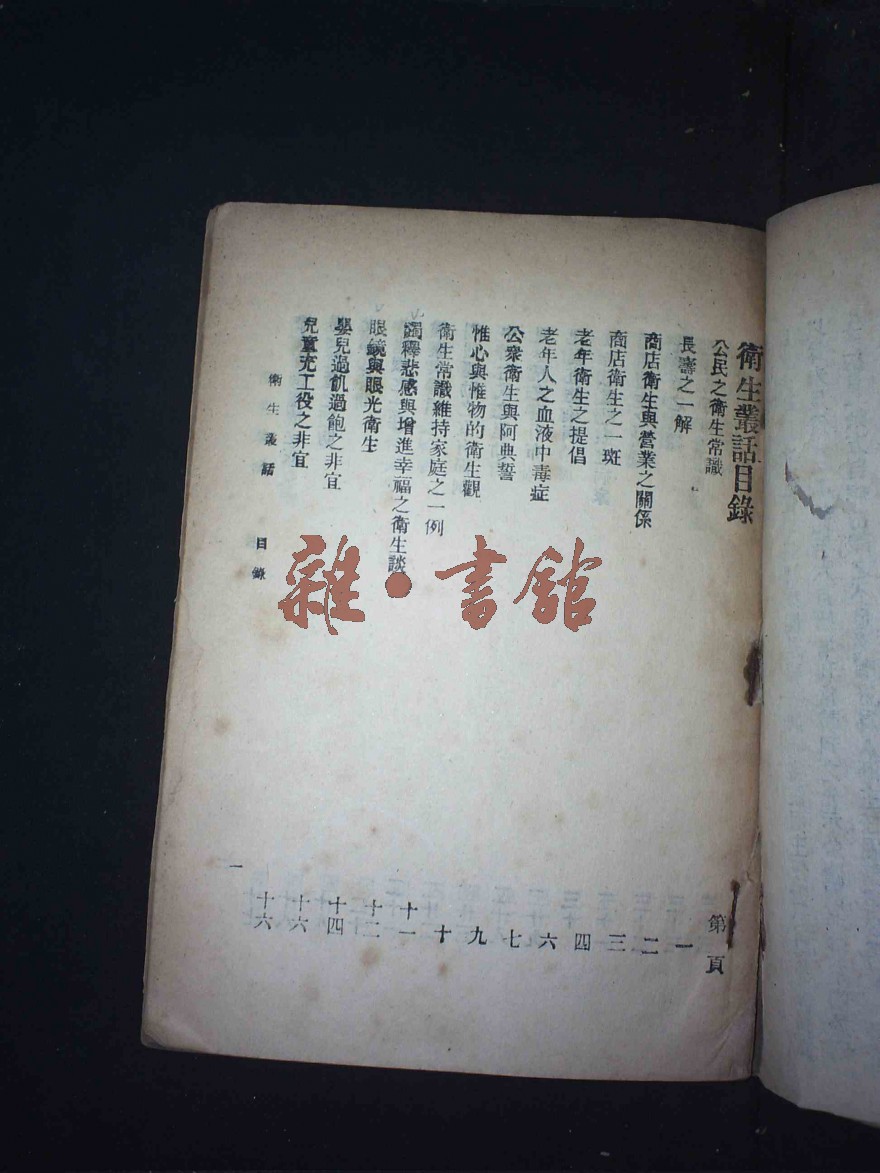 衛生叢話目錄 第 頁
公民之衛生常識 一
長壽之一解 二
商店衛生與營業之關係 三
商店衛生之一斑 四
老年衛生之提倡 六
老年人之血液中毒症 七
公衆衛生與阿典誓 九
惟心與惟物的衛生觀 十
衛生常識維持家庭之一例 十一
蠲釋悲感與增進幸福之衛生談 十二
眼鏡與眼光衛生 十四
嬰兒過飢過飽之非宜 十六
兒童充工役之非宜 十六
衛生叢話 目錄 一
雜·書館